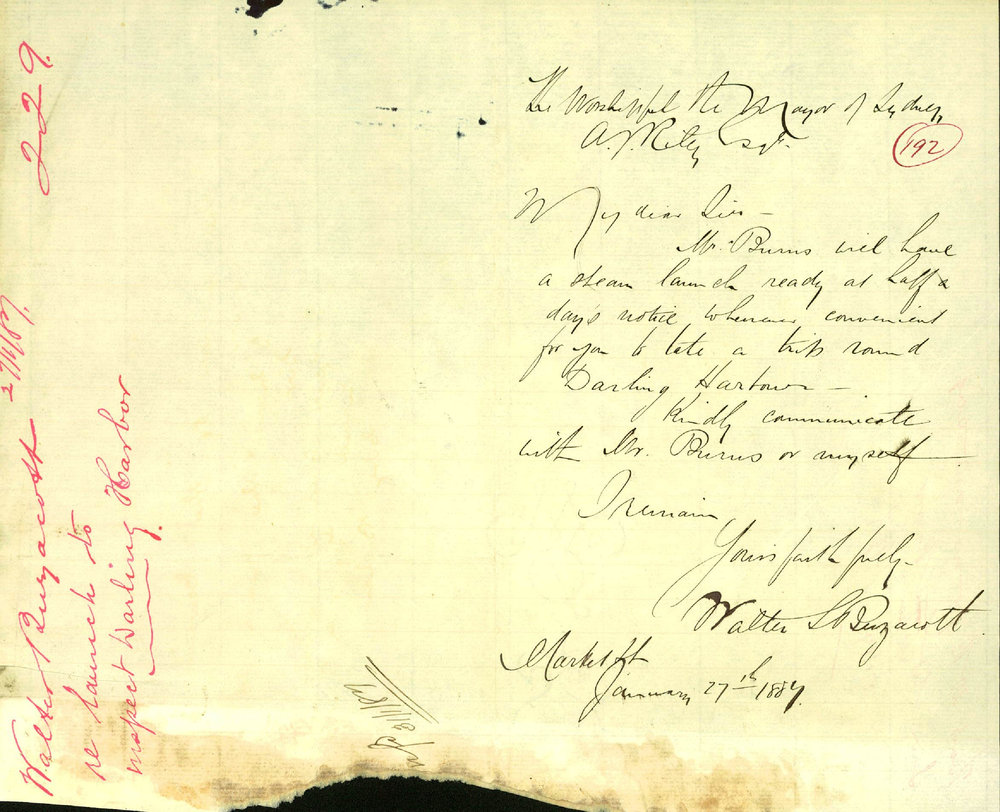 The Worshipful the Mayor of Sydney,
A. J. Riley Esqr.
192
My dear Sir —
Mr. Burns will have
a steam launch ready at half a
day's notice whenever convenient
for you to take a trip round
Darling Harbour —
Kindly communicate
with Mr. Burns or myself
I remain
Yours faithfully
Walter S Buzacott
Market St
January 27th 1887.
229.
Walter Buzacott 27/1/87.
re launch to
inspect Darling Harbor
31/1/87